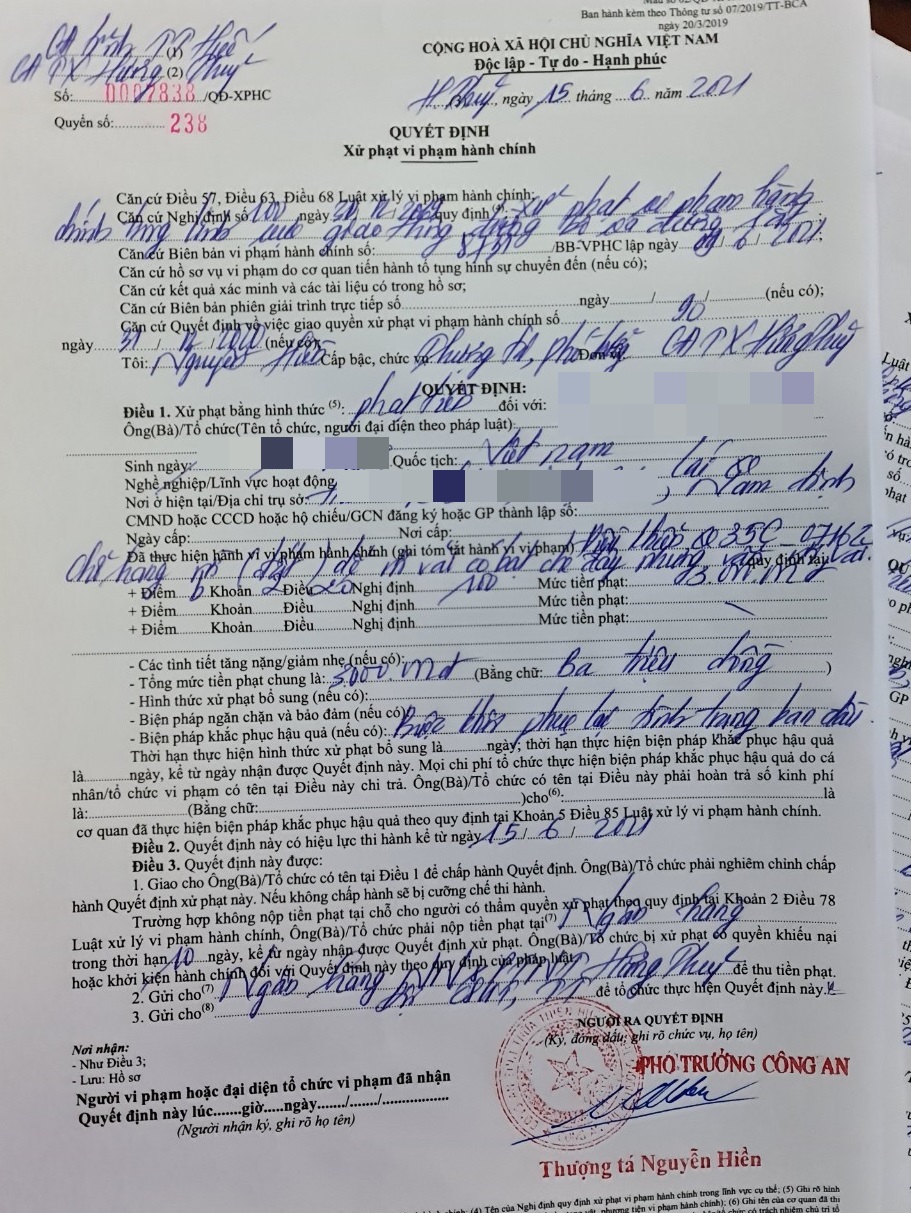 Ban hành kèm theo Thông tư số 07/2019/TT-BCA
ngày 20/3/2019
CA tỉnh TT Huế (1)
CA TX Hương Thuỷ (2)
Số: 0007838 /QĐ-XPHC
Quyển số: 238
CỘNG HOÀ XÃ HỘI CHỦ NGHĨA VIỆT NAM
Độc lập - Tự do - Hạnh phúc
H.Thuỷ, ngày 15 tháng 6 năm 2021
QUYẾT ĐỊNH
Xử phạt vi phạm hành chính
Căn cứ Điều 57, Điều 63, Điều 68 Luật xử lý vi phạm hành chính;
Căn cứ Nghị định số 100 ngày quy định xử phạt vi phạm hành
chính trong lĩnh vực giao thông đường bộ và đường sắt
Căn cứ Biên bản vi phạm hành chính số: /BB-VPHC lập ngày 6 / 2021;
Căn cứ hồ sơ vụ vi phạm do cơ quan tiến hành tố tụng hình sự chuyển đến (nếu có);
Căn cứ kết quả xác minh và các tài liệu có trong hồ sơ;
Căn cứ Biên bản phiên giải trình trực tiếp số ngày / / (nếu có);
Căn cứ Quyết định về việc giao quyền xử phạt vi phạm hành chính số 90
ngày 31 / 12 / 2020 (nếu có)
Tôi: Nguyễn Hiền Cấp bậc, chức vụ: Thượng tá, phó Đơn vị: CA TX Hương Thuỷ
QUYẾT ĐỊNH:
Điều 1. Xử phạt bằng hình thức (5): phạt tiền đối với:
Ông(Bà)/Tổ chức(Tên tổ chức, người đại diện theo pháp luật):
Sinh ngày: Quốc tịch: Việt nam
Nghề nghiệp/Lĩnh vực hoạt động lái xe
Nơi ở hiện tại/Địa chỉ trụ sở: , Nam Định
CMND hoặc CCCD hoặc hộ chiếu/GCN đăng ký hoặc GP thành lập số:
Ngày cấp: Nơi cấp:
Đã thực hiện hành vi vi phạm hành chính (ghi tóm tắt hành vi vi phạm) 35C_07162
chở hàng rời (đất) để rơi vãi có bạt che đậy nhưng vẫn rơi vãi. quy định tại:
+ Điểm b Khoản 2 Điều 20 Nghị định 100 Mức tiền phạt: 3.000.000đ
+ Điểm Khoản Điều Nghị định Mức tiền phạt:
+ Điểm Khoản Điều Nghị định Mức tiền phạt:
- Các tình tiết tăng nặng/giảm nhẹ (nếu có):
- Tổng mức tiền phạt chung là: 3.000.000đ (Bằng chữ: Ba triệu đồng )
- Hình thức xử phạt bổ sung (nếu có):
- Biện pháp ngăn chặn và bảo đảm (nếu có)
- Biện pháp khắc phục hậu quả (nếu có): Buộc khôi phục lại tình trạng ban đầu
Thời hạn thực hiện hình thức xử phạt bổ sung là ngày; thời hạn thực hiện biện pháp khắc phục hậu quả
là ngày, kể từ ngày nhận được Quyết định này. Mọi chi phí tổ chức thực hiện biện pháp khắc phục hậu quả do cá
nhân/tổ chức vi phạm có tên tại Điều này chi trả. Ông(Bà)/Tổ chức có tên tại Điều này phải hoàn trả số kinh phí
là: (Bằng chữ: )cho(6): là
cơ quan đã thực hiện biện pháp khắc phục hậu quả theo quy định tại Khoản 5 Điều 85 Luật xử lý vi phạm hành chính.
Điều 2. Quyết định này có hiệu lực thi hành kể từ ngày 15 / 6 / 2021
Điều 3. Quyết định này được:
1. Giao cho Ông(Bà)/Tổ chức có tên tại Điều 1 để chấp hành Quyết định. Ông(Bà)/Tổ chức phải nghiêm chỉnh chấp
hành Quyết định xử phạt này. Nếu không chấp hành sẽ bị cưỡng chế thi hành.
Trường hợp không nộp tiền phạt tại chỗ cho người có thẩm quyền xử phạt theo quy định tại Khoản 2 Điều 78
Luật xử lý vi phạm hành chính, Ông(Bà)/Tổ chức phải nộp tiền phạt tại(7) Ngân hàng
trong thời hạn 10 ngày, kể từ ngày nhận được Quyết định xử phạt. Ông(Bà)/Tổ chức bị xử phạt có quyền khiếu nại
hoặc khởi kiện hành chính đối với Quyết định này theo quy định của pháp luật.
2. Gửi cho(7) Ngân hàng Hương Thuỷ để thu tiền phạt.
3. Gửi cho(8) để tổ chức thực hiện Quyết định này./.
NGƯỜI RA QUYẾT ĐỊNH
(Ký, đóng dấu; ghi rõ chức vụ, họ tên)
PHÓ TRƯỞNG CÔNG AN
Thượng tá Nguyễn Hiền
Nơi nhận:
- Như Điều 3;
- Lưu: Hồ sơ
Người vi phạm hoặc đại diện tổ chức vi phạm đã nhận
Quyết định này lúc.......giờ.....ngày......./......./................
(Người nhận ký, ghi rõ họ tên)
(4) Tên của Nghị định quy định xử phạt vi phạm hành chính trong lĩnh vực cụ thể; (5) Ghi rõ hình
phương tiện vi phạm hành chính); (6) Ghi tên của cơ quan đã thi